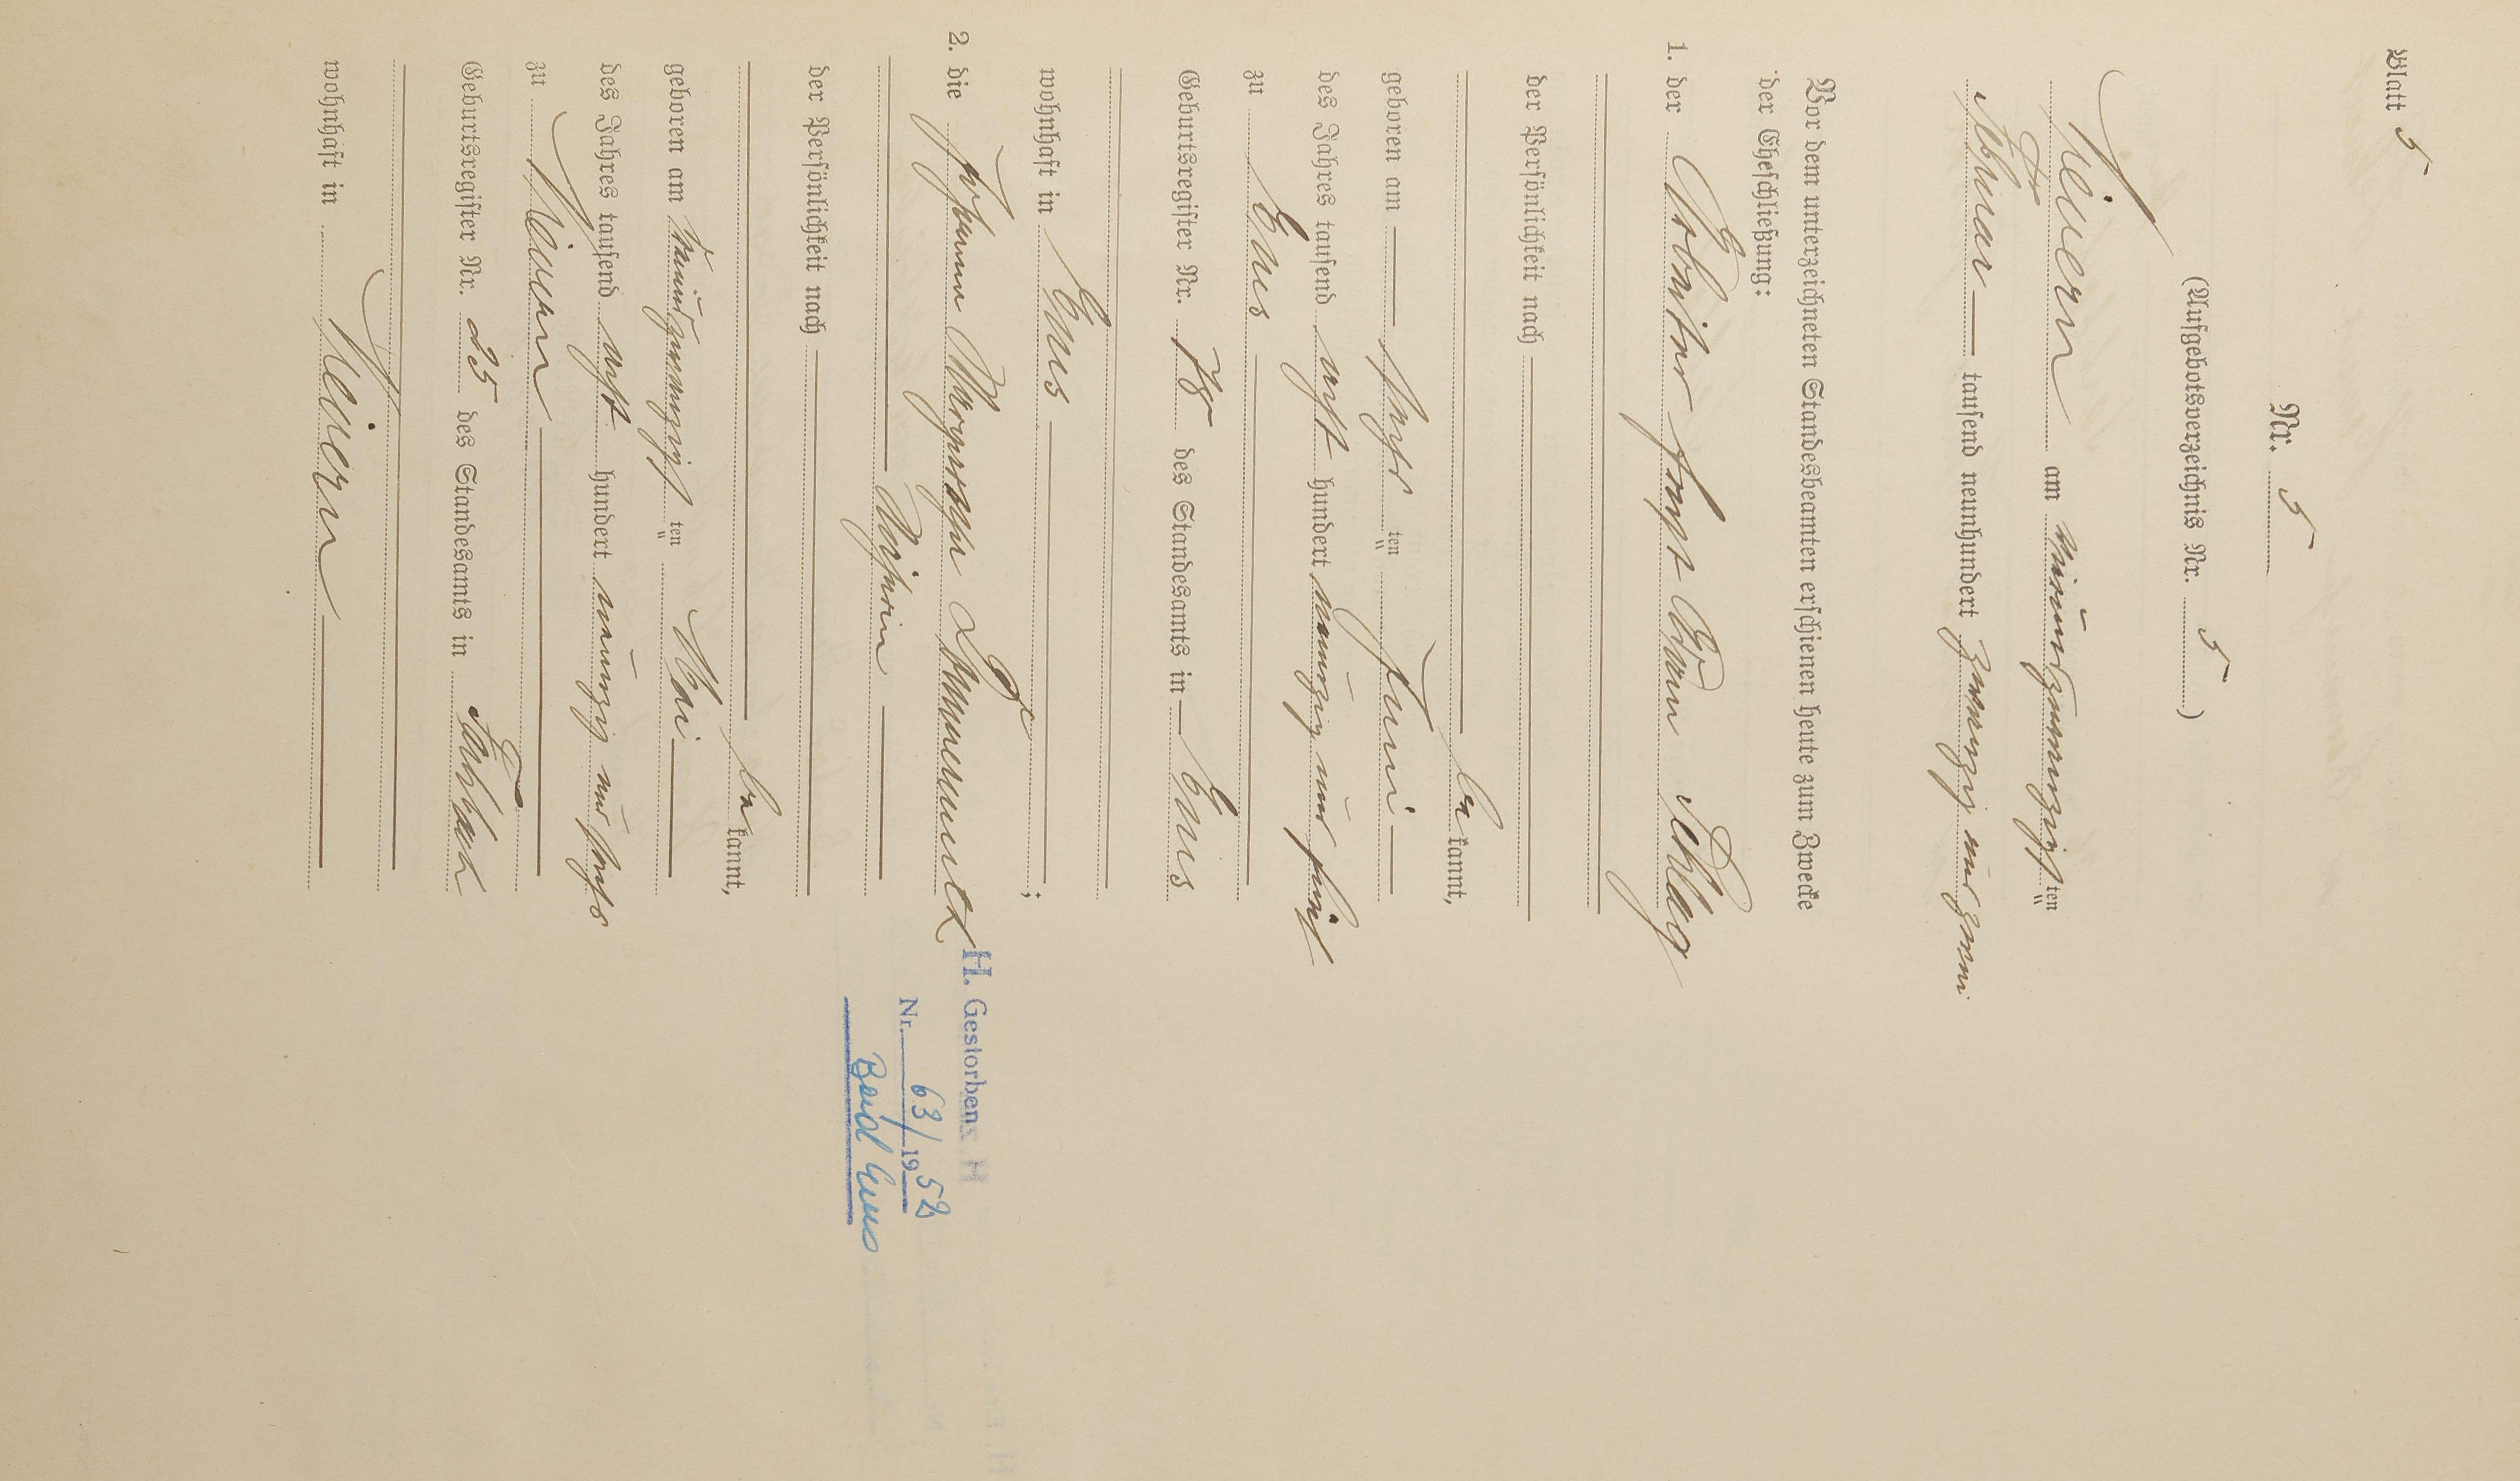 Blatt 5
Nr. 5
(Aufgebotsverzeichnis Nr. 5)
Nievern am neunundzwanzigsten
Februar tausend neunhundert zwanzig und
Vor dem unterzeichneten Standesbeamten erschienen heute zum Zwecke
der Eheschließung:
1. der Arbeiter
der Persönlichkeit nach
be kannt,
geboren am sechs ten Juni
des Jahres tausend acht hundert neunzig und fünf
zu Ems
Geburtsregister Nr. 78 des Standesamts in Ems
wohnhaft in Ems
;
2. die Johanna Margarethe
der Persönlichkeit nach
be kannt,
geboren am neunundzwanzigs ten Mai
des Jahres tausend acht hundert neunzig und sechs
zu Nievern
Geburtsregister Nr. 25 des Standesamts in Fachbach
wohnhaft in Nievern
H. Gestorben
Nr. 63/1952
Bad Ems